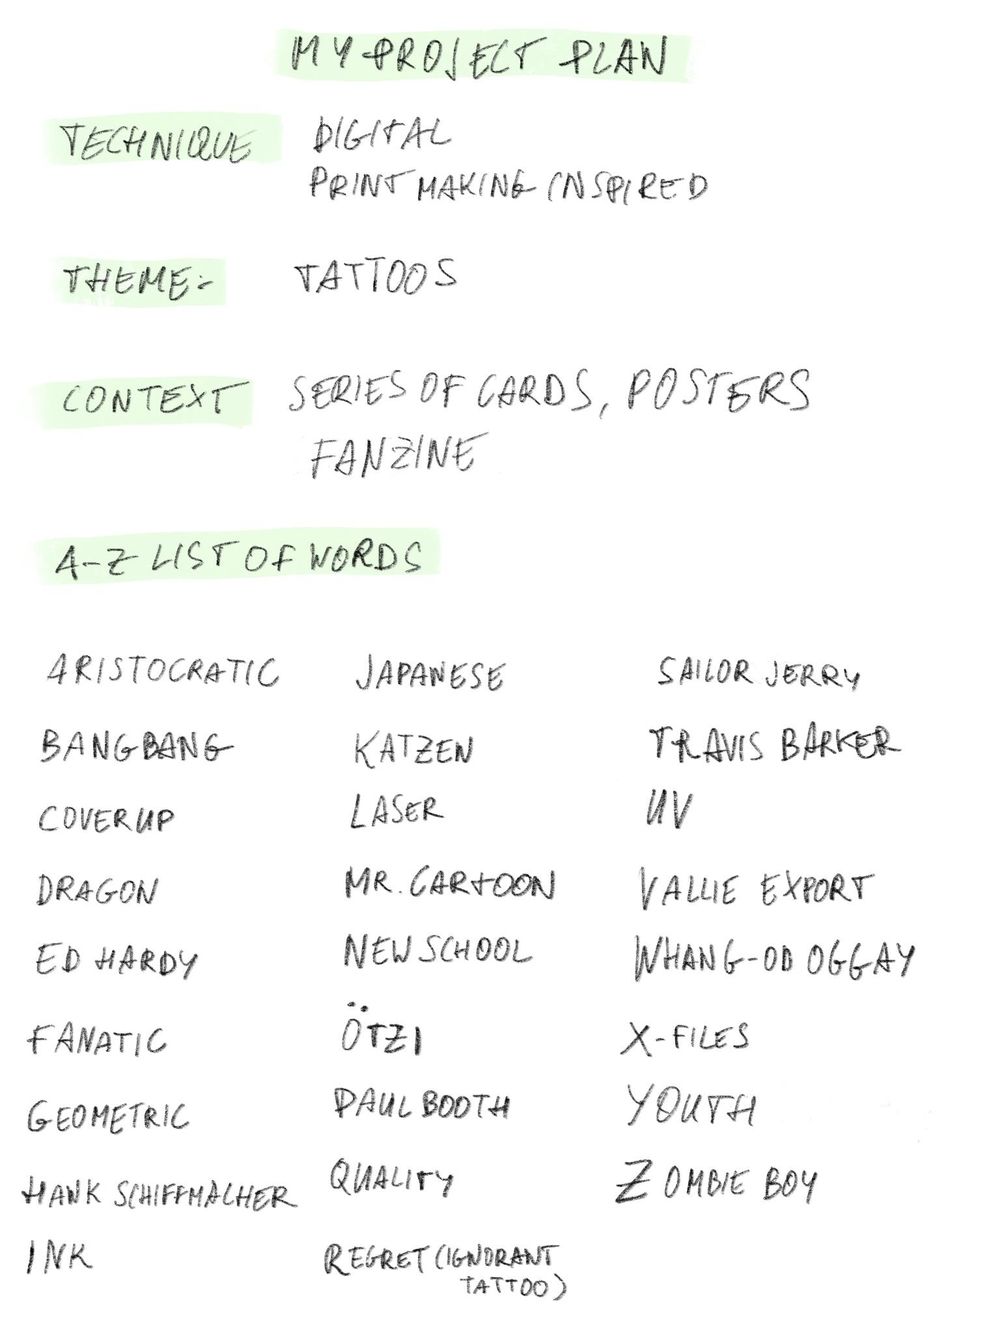 MY PROJECT PLAN
TECHNIQUE DIGITAL
PRINTMAKING INSPIRED
THEME: TATTOOS
CONTEXT SERIES OF CARDS, POSTERS
FANZINE
A-Z LIST OF WORDS
ARISTOCRATIC
BANGBANG
COVERUP
DRAGON
ED HARDY
FANATIC
GEOMETRIC
HANK SCHIFFMACHER
INK
JAPANESE
KATZEN
LASER
MR. CARTOON
NEW SCHOOL
ÖTZI
PAUL BOOTH
QUALITY
REGRET (IGNORANT
TATTOO)
SAILOR JERRY
TRAVIS BARKER
UV
VALLIE EXPORT
WHANG-OD OGGAY
X-FILES
YOUTH
ZOMBIE BOY